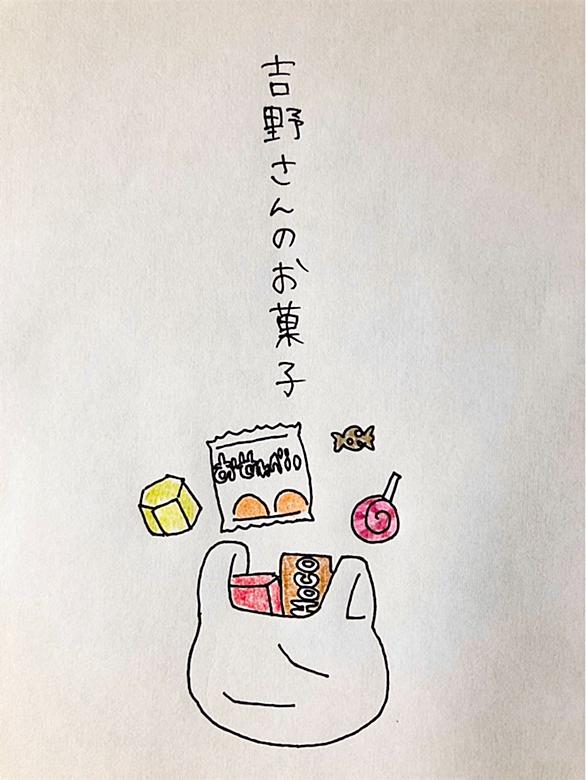 吉野さんのお菓子
おせんべい
HOCO